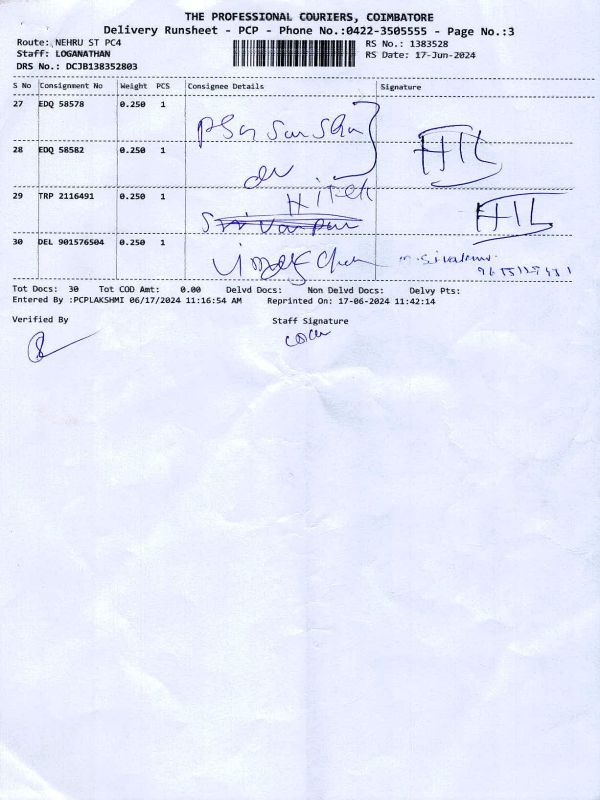 THE PROFESSIONAL COURIERS, COIMBATORE
Delivery Runsheet - PCP - Phone No.:0422-3505555 - Page No.:3
Route: NEHRU ST PC4 RS No.: 1383528
Staff: LOGANATHAN RS Date: 17-Jun-2024
DRS No.: DCJB138352803
S No Consignment No Weight PCS Consignee Details Signature
27 EDQ 58578 0.250 1
28 EDQ 58582 0.250 1
29 TRP 2116491 0.250 1
30 DEL 901576504 0.250 1
Tot Docs: 30 Tot COD Amt: 0.00 Delvd Docs: Non Delvd Docs: Delvy Pts:
Entered By :PCPLAKSHMI 06/17/2024 11:16:54 AM Reprinted On: 17-06-2024 11:42:14
Verified By Staff Signature